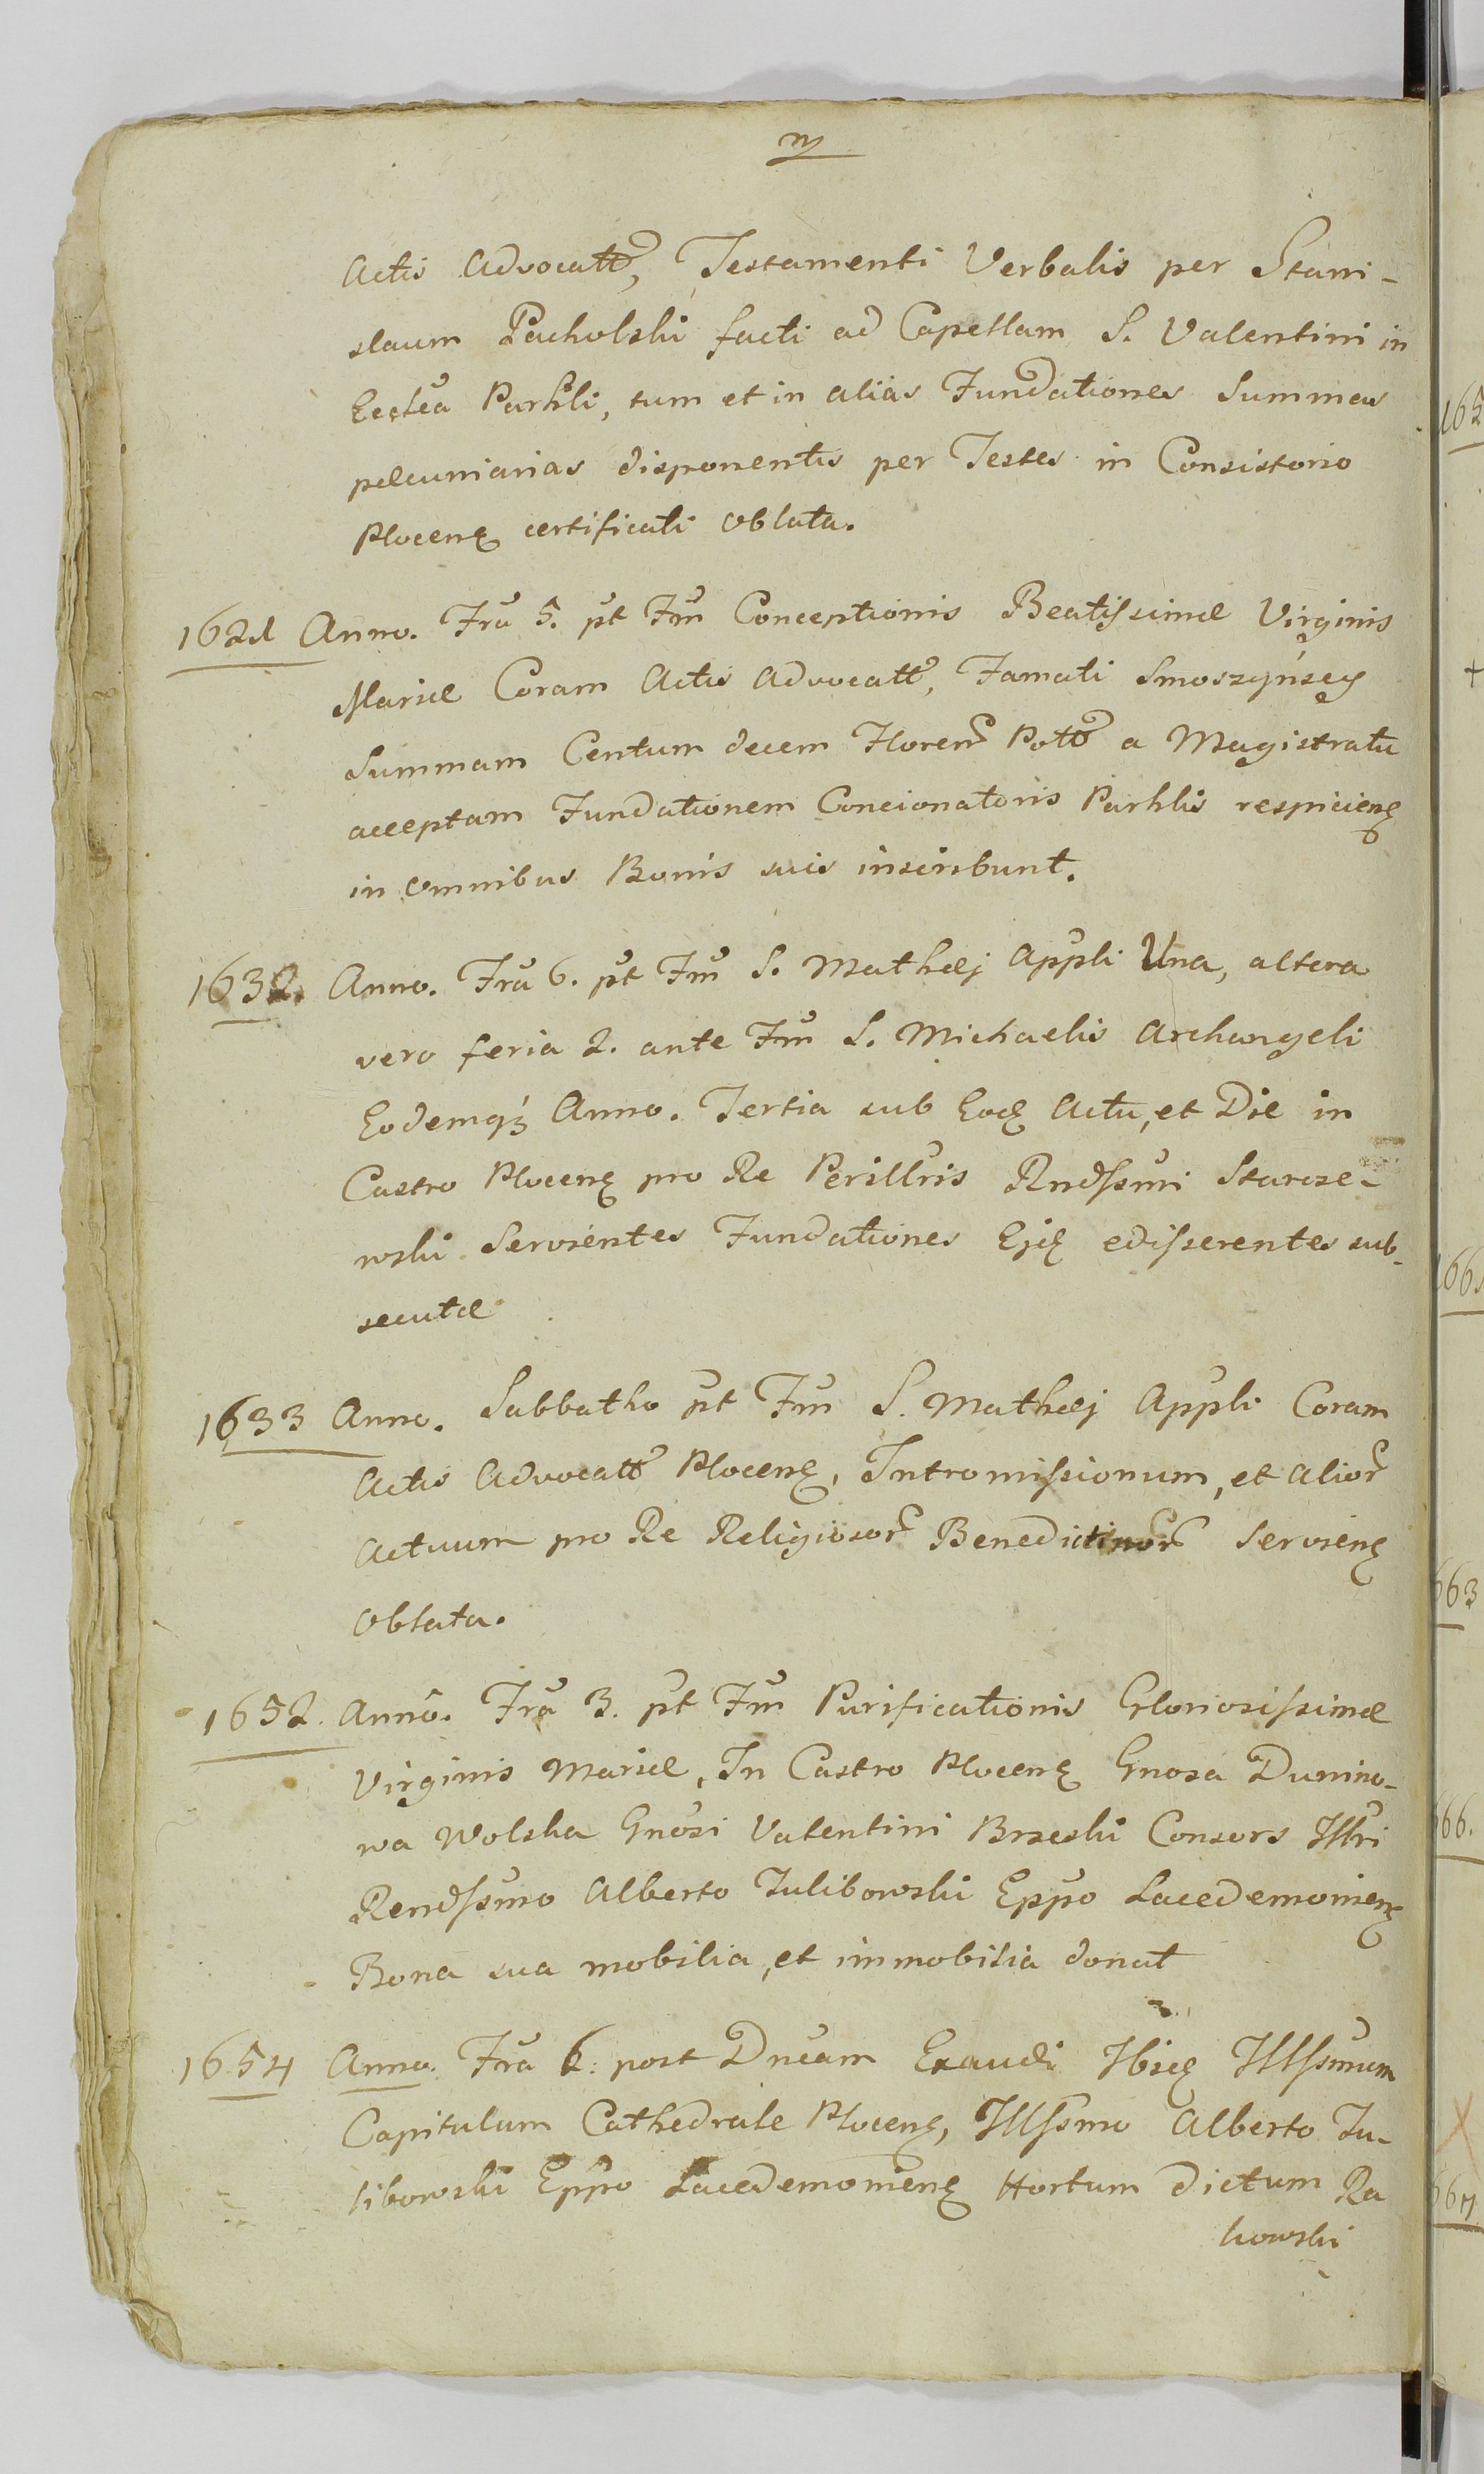 Actis Advocatt, Testamenti Verbalis per Stani-
slaum Pacholski facti ad Capellam S. Valentini in
Ecclea Parhli, tum et in alias Fundationes Summas
pecuniarias disponentis per Testes in Consistorio
Plocens certificati Oblata.
1621 Anno. Fra 5. pt Fm Conceptionis Beatissimæ Virginis
Mariæ Coram Actis Advocatt, Famati Smoszynscy
Summam Centum decem Floren Poll a Magistratu
acceptam Fundationem Concionatoris Parhlis respiciens
in omnibus Bonis suis inscribunt.
1632. Anno. Fra 6. pt Fm S. Mathæj Appli Una, altera
vero feria 2. ante Fm S. Michaelis Archangeli
Eodemq3 Anno. Tertia sub Eod Actu, et Die in
Castro Plocens pro Re Perillris Rndssmi Starcze-
wski Servientes Fundationes Ejus edisserentes sub-
secutæ
1633 Anno. Sabbatho pt Fm S. Mathæj Appli Coram
Actis Advocatt Plocens, Intromissionum, et alior
Actuum pro Re Religiosor Benedictinor Serviens
Oblata.
1652. Anno. Fra 3. pt Fm Purificationis Gloriosissimæ
Virginis Mariæ, In Castro Plocens Gnosa Dunino-
wa Wolska Gnosi Valentini Brzeski Consors Illri
Rendssmo Alberto Tulibowski Eppo Lacedemoniens
Bona sua mobilia, et immobilia donat
1654 Anno. Fra 6. post Dncam Exaudi Ibid Illssmum
Capitulum Cathedrale Plocens, Illssmo Alberto Tu-
libowski Eppo Lacedemoniens Hortum dictum Ra
kowski
663
666.